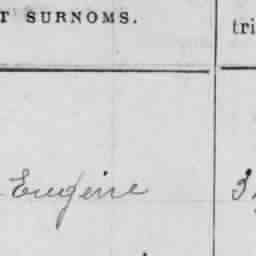 T SURNOMS.
tri
Eugène
3